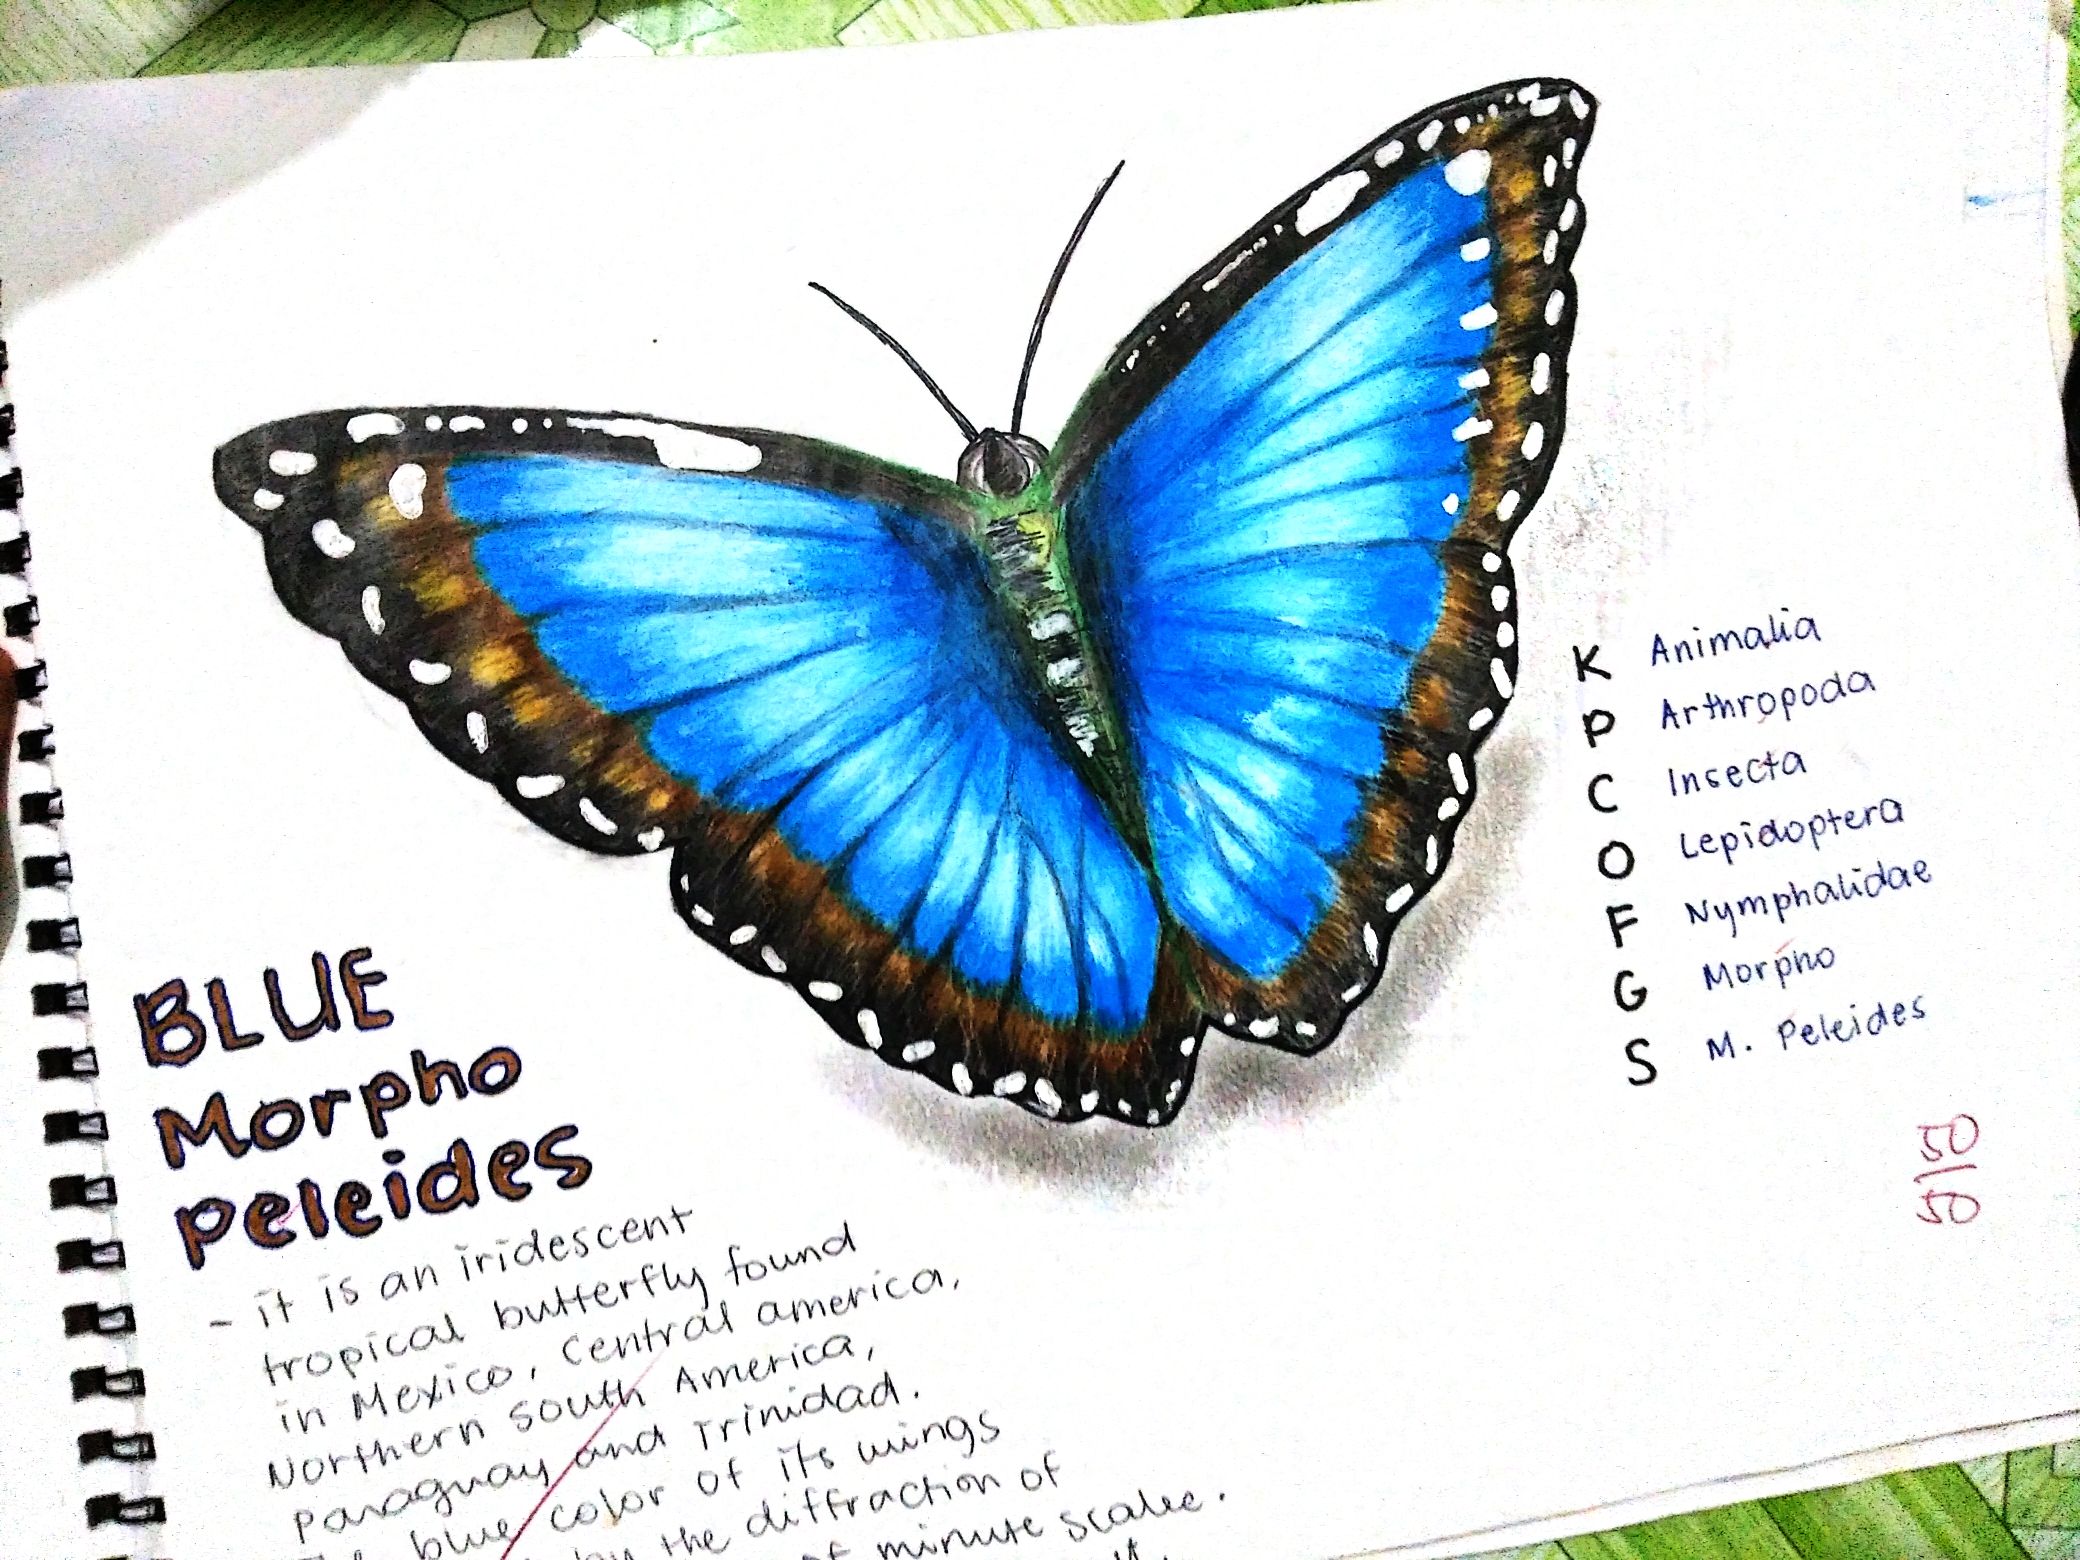 BLUE
Morpho
Peleides
- it is an iridescent
tropical butterfly found
in Mexico, Central america,
Northern South America,
Paraguay and Trinidad.
blue color of its wings
by the diffraction of
of minute scales.
K Animalia
P Arthropoda
C Insecta
O Lepidoptera
F Nymphalidae
G Morpho
S M. Peleides
50
50